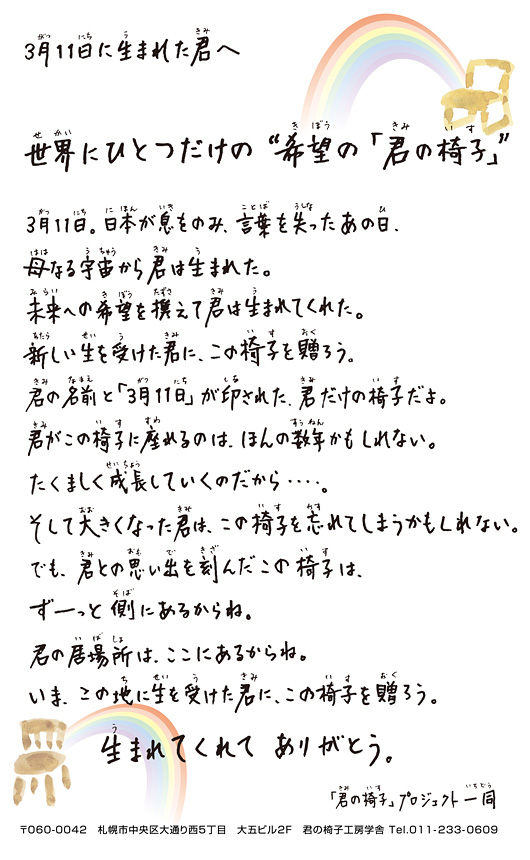 3月11日に生まれた君へ
世界にひとつだけの“希望の「君の椅子」”
3月11日。日本が息をのみ、言葉を失ったあの日、
母なる宇宙から君は生まれた。
未来への希望を携えて君は生まれてくれた。
新しい生を受けた君に、この椅子を贈ろう。
君の名前と「3月11日」が印された、君だけの椅子だよ。
君がこの椅子に座れるのは、ほんの数年かもしれない。
たくましく成長していくのだから‥‥。
そして大きくなった君は、この椅子を忘れてしまうかもしれない。
でも、君との思い出を刻んだこの椅子は、
ずーっと側にあるからね。
君の居場所は、ここにあるからね。
いま、この地に生を受けた君に、この椅子を贈ろう。
生まれてくれて ありがとう。
「君の椅子」プロジェクト一同
〒060-0042 札幌市中央区大通り西5丁目 大五ビル2F 君の椅子工房学舎 Tel.011-233-0609